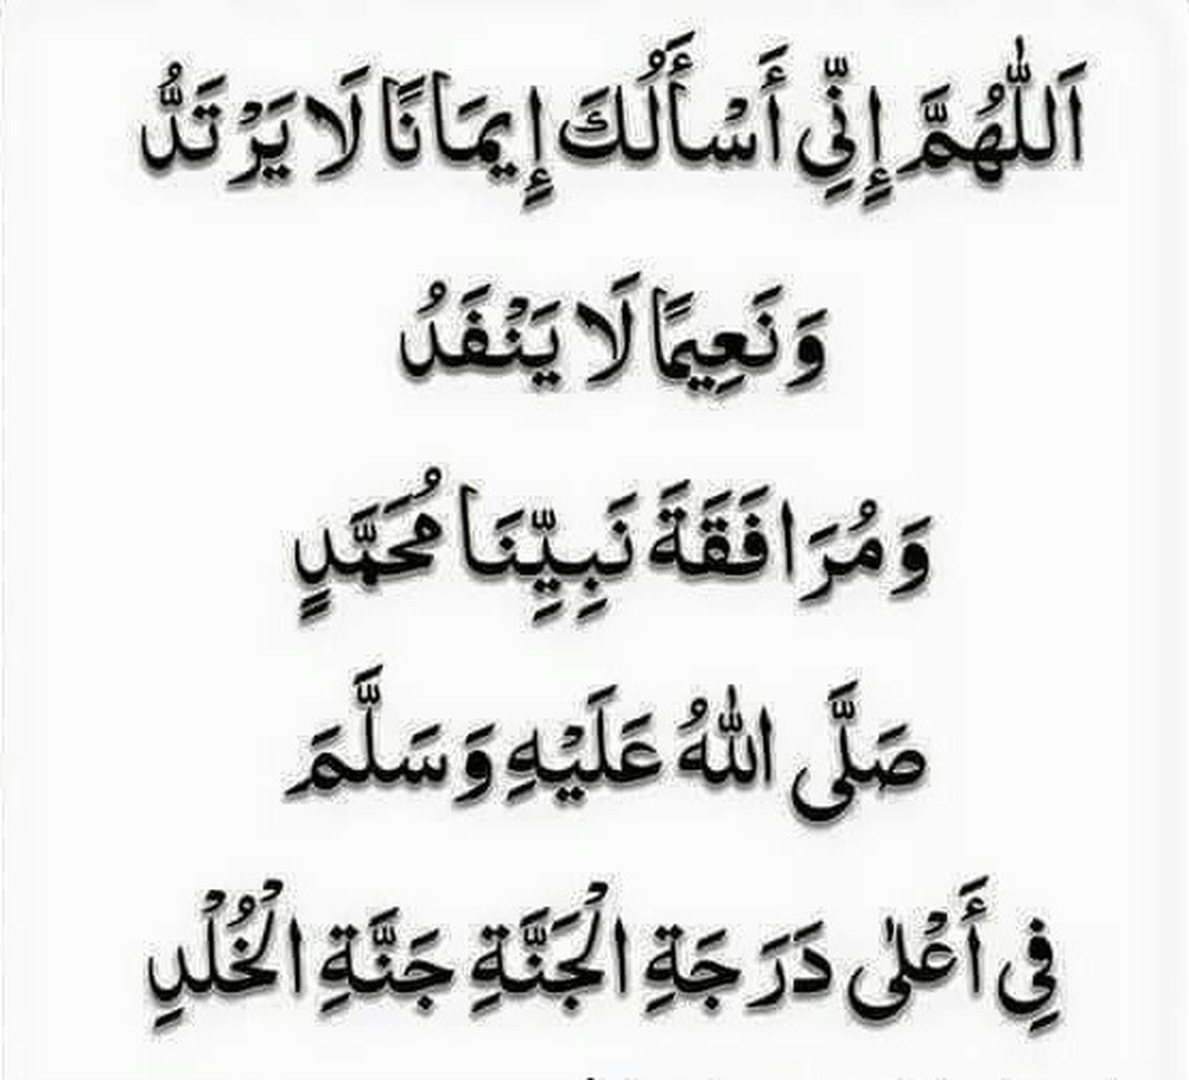 اَللّٰهُمَّ إِنِّي أَسْأَلُكَ إِيمَانًا لَا يَرْتَدُّ
وَنَعِيمًا لَا يَنْفَدُ
وَمُرَافَقَةَ نَبِيِّنَا مُحَمَّدٍ
صَلَّى اللّٰهُ عَلَيْهِ وَسَلَّمَ
فِي أَعْلٰى دَرَجَةِ الْجَنَّةِ جَنَّةِ الْخُلْدِ